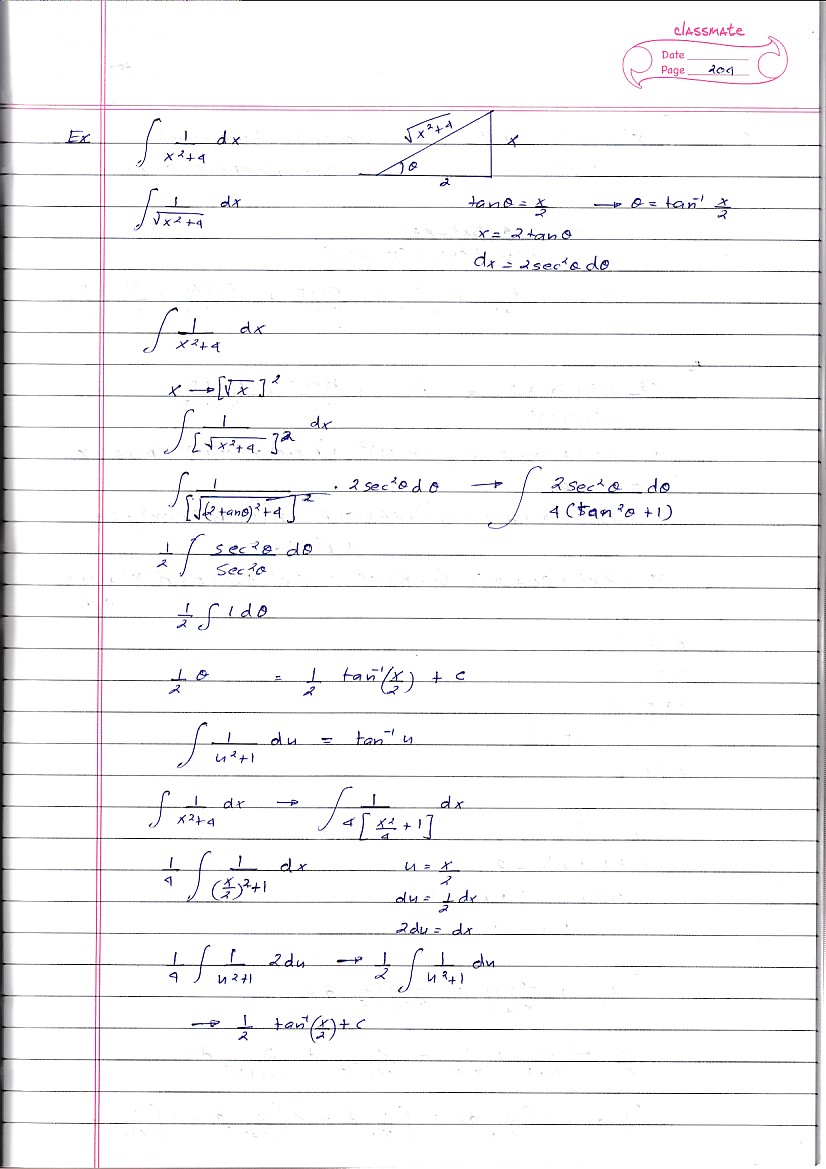 classmate
Date
Page 209
Ex ∫ 1/(x²+4) dx
√x²+4
x
θ
2
∫ 1/√x²+4 dx
tanθ = x/2 → θ = tan⁻¹ x/2
x = 2tanθ
dx = 2sec²θ dθ
∫ 1/(x²+4) dx
x → [√x]²
∫ 1/[√x²+4]² dx
∫ 1/[√(2tanθ)²+4]² · 2sec²θ dθ → ∫ 2sec²θ dθ/4(tan²θ+1)
1/2 ∫ sec²θ dθ/sec²θ
1/2 ∫ 1 dθ
1/2 θ = 1/2 tan⁻¹(x/2) + c
∫ 1/(u²+1) du = tan⁻¹ u
∫ 1/(x²+4) dx → ∫ 1/4[x²/4 + 1] dx
1/4 ∫ 1/((x/2)²+1) dx
u = x/2
du = 1/2 dx
2du = dx
1/4 ∫ 1/(u²+1) 2du → 1/2 ∫ 1/(u²+1) du
→ 1/2 tan⁻¹(x/2) + c